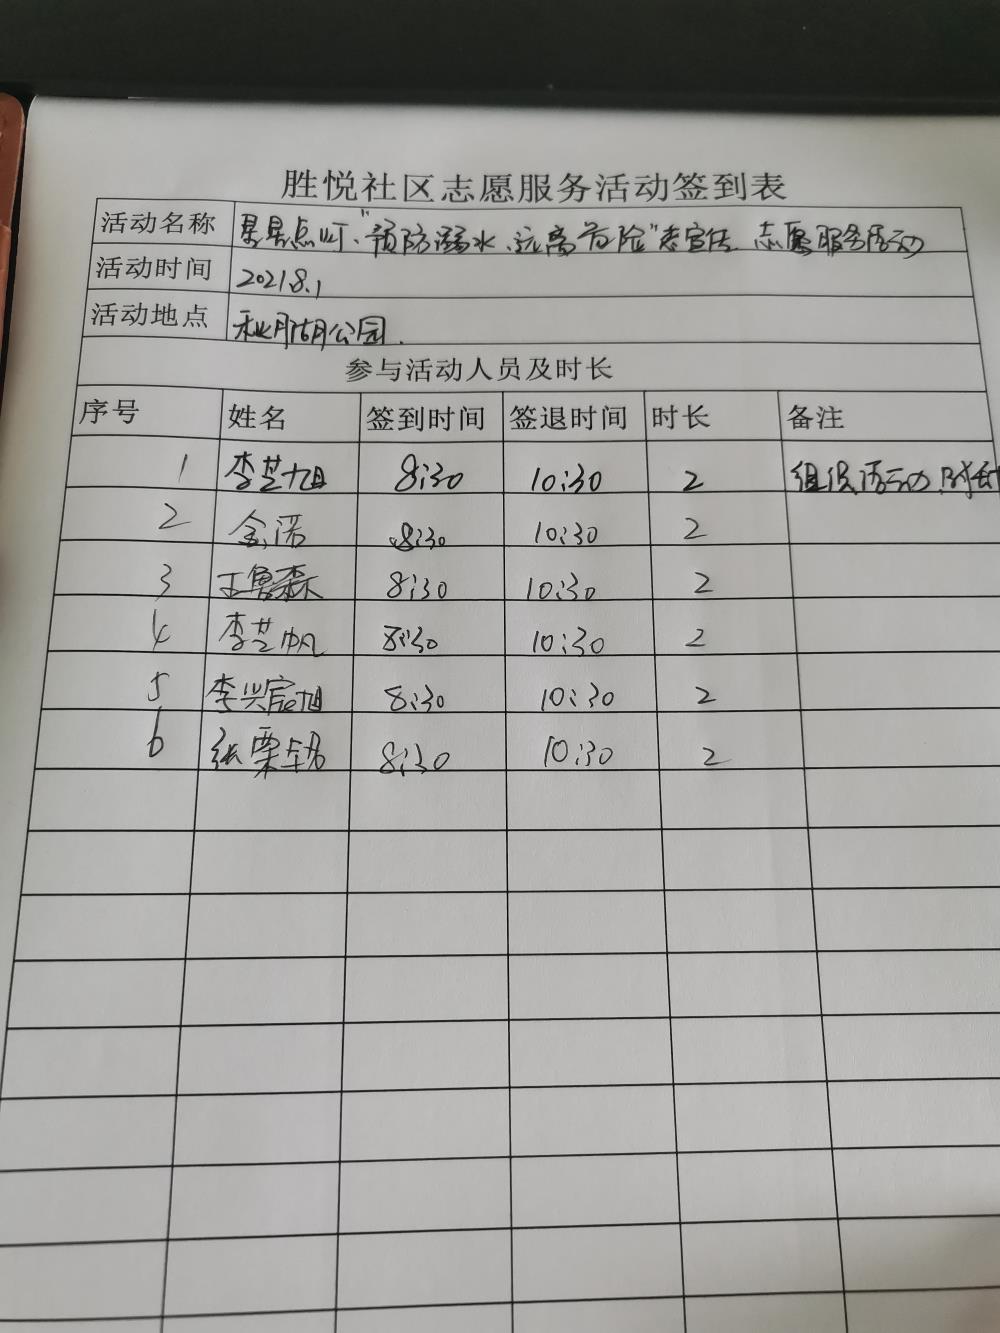 胜悦社区志愿服务活动签到表
活动名称 星星点灯、"预防溺水、远离危险"志宣传 志愿服务活动
活动时间 2021.8.1
活动地点 秋月湖公园.
参与活动人员及时长
序号 姓名 签到时间 签退时间 时长 备注
1 李芝旭 8:30 10:30 2 组织活动
2 金诺 8:30 10:30 2
3 王鲁森 8:30 10:30 2
4 李芝帆 8:30 10:30 2
5 李兴宸旭 8:30 10:30 2
6 张栗 8:30 10:30 2